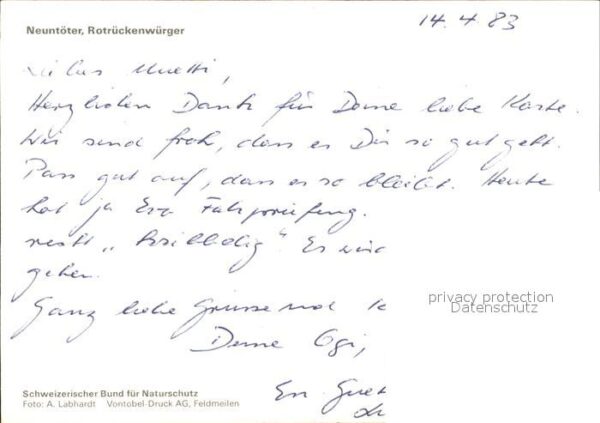 Neuntöter, Rotrückenwürger
14.4.83
Muetti,
Herzlichen Dank für Deine liebe Karte.
Wir sind froh, dass es Dir so gut geht.
Pass gut auf, dass es so bleibt. Heute
hat ja Eva Fahrprüfung.
Es wird
gehen.
Ganz liebe Grüsse und
Deine
privacy protection
Datenschutz
Schweizerischer Bund für Naturschutz
Foto: A. Labhardt Vontobel-Druck AG, Feldmeilen